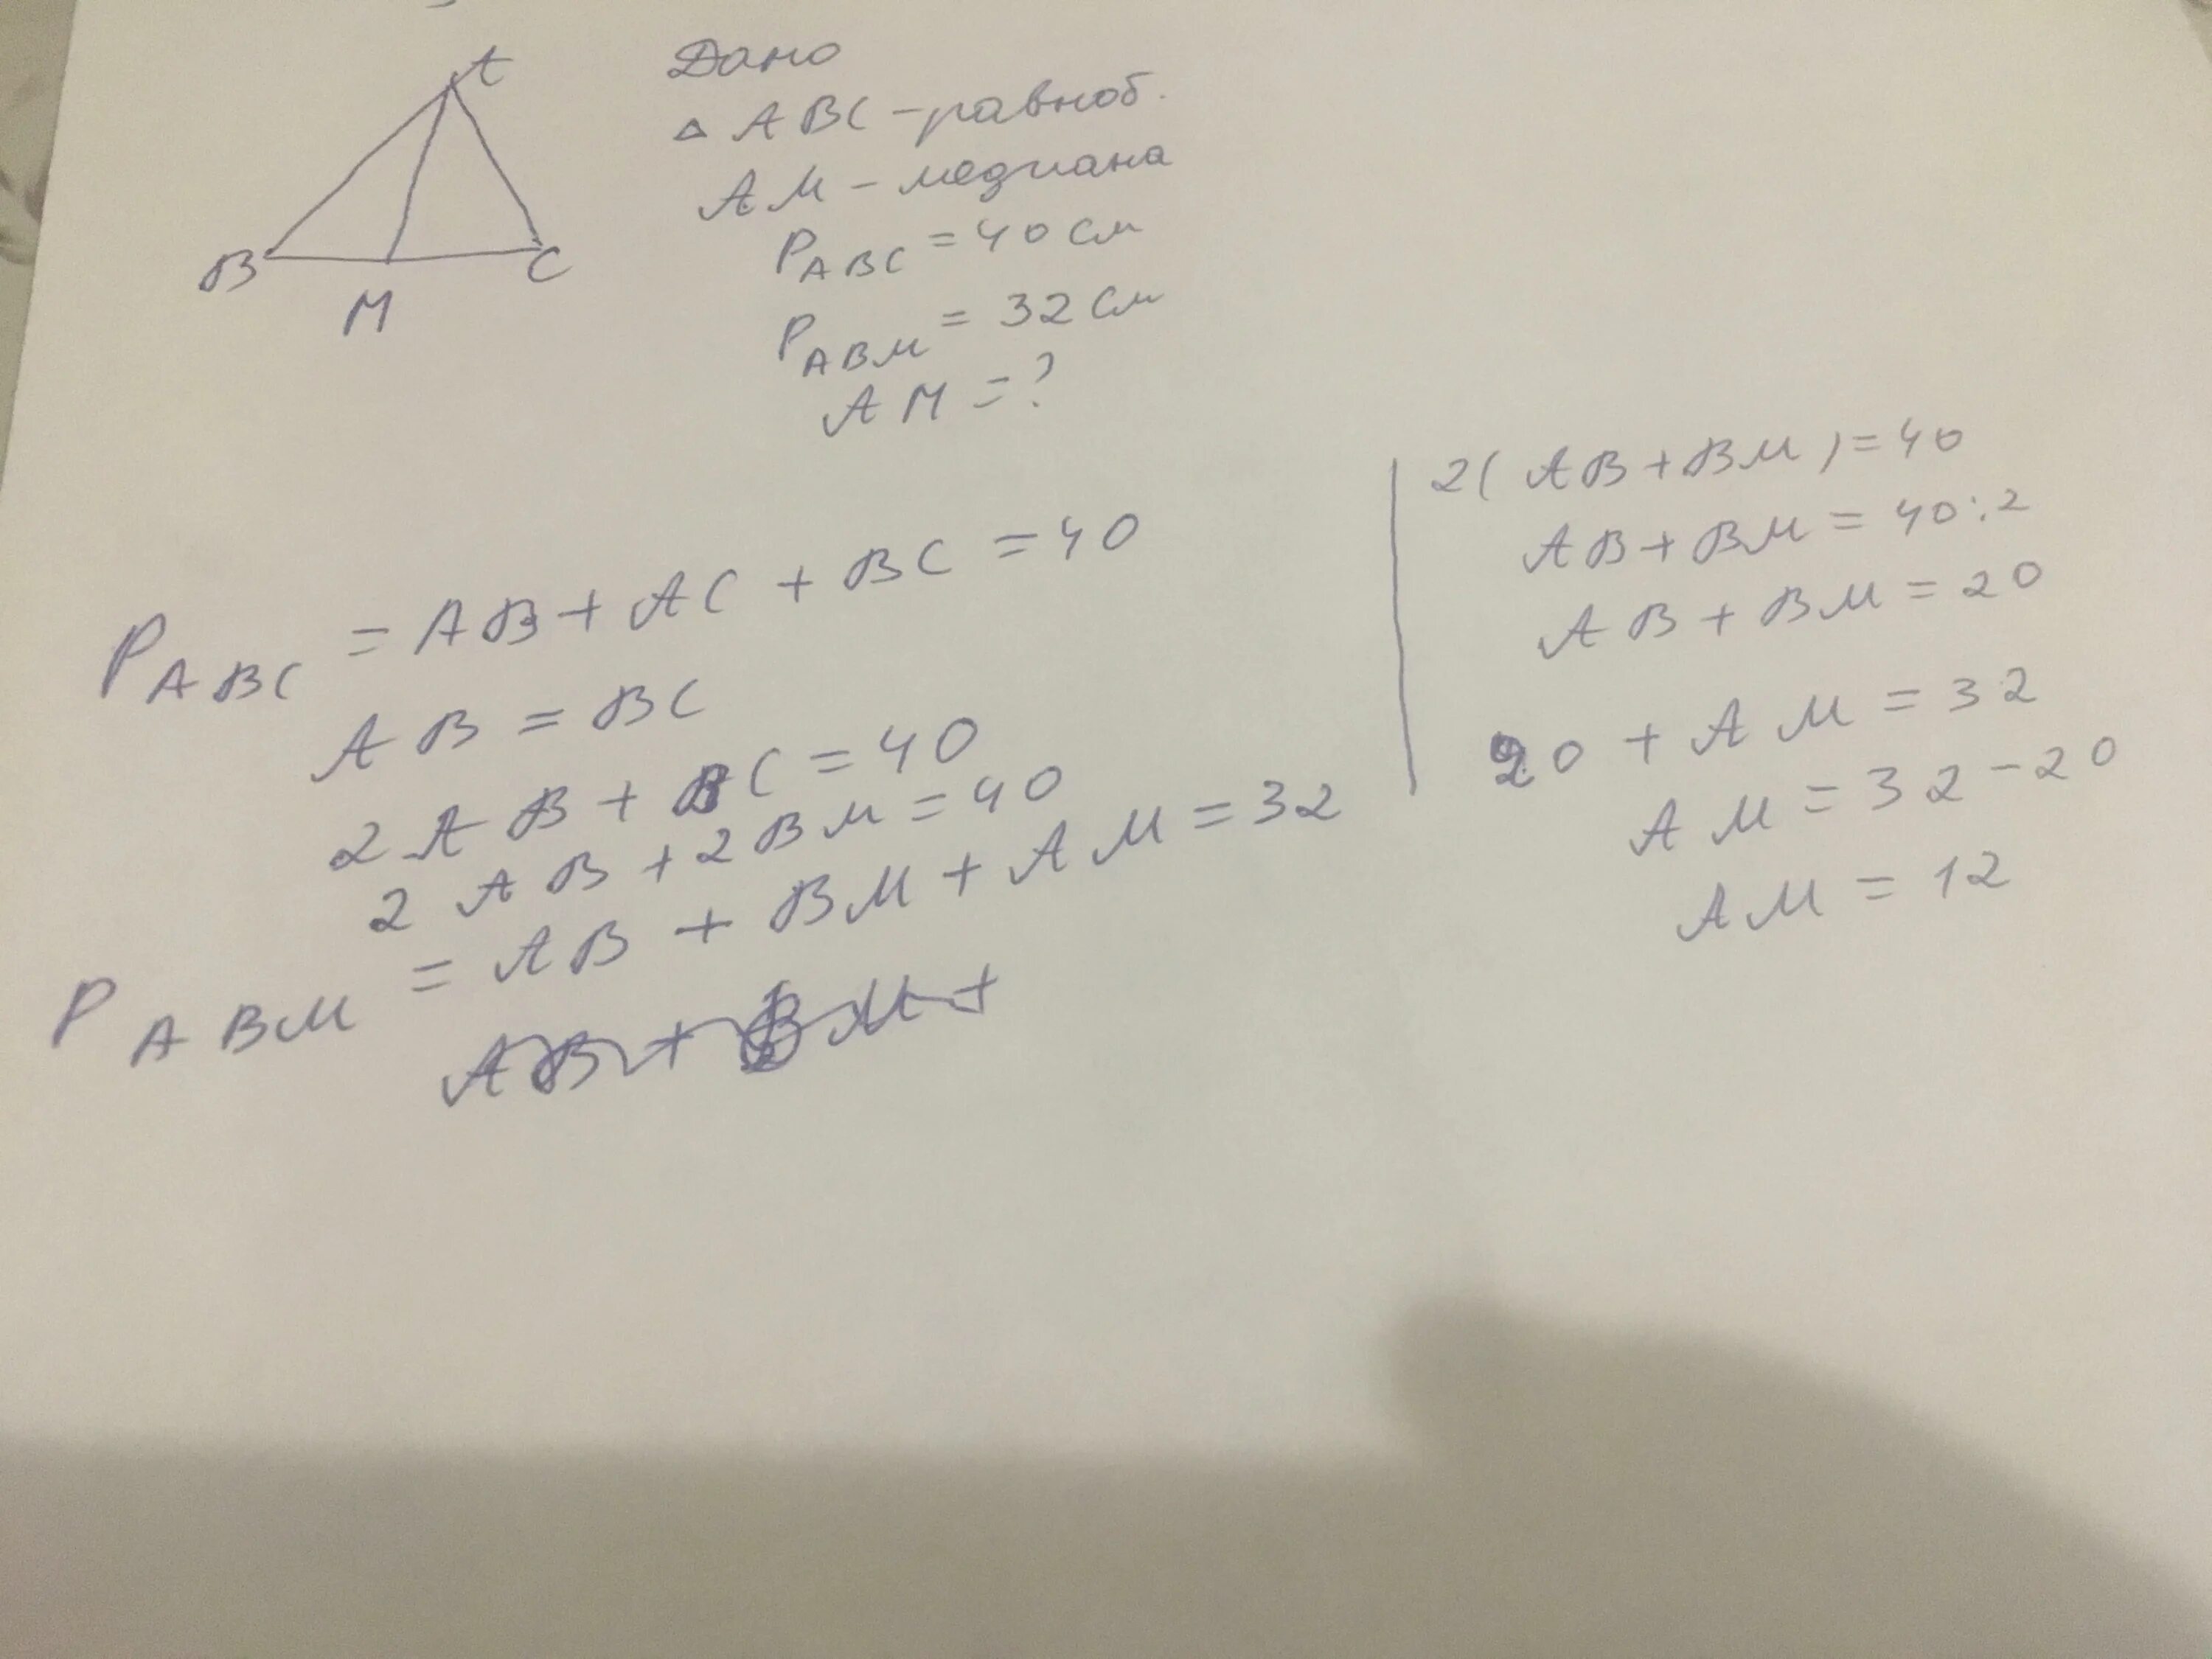 A
B
C
M
Дано
△ ABC - равноб.
AM - медиана
P ABC = 40 см
P ABM = 32 см
AM = ?
P ABC = AB + AC + BC = 40
AB = BC
2 AB + BC = 40
2 AB + 2BM = 40
P ABM = AB + BM + AM = 32
AB + BM +
2( AB + BM ) = 40
AB + BM = 40 : 2
AB + BM = 20
20 + AM = 32
AM = 32 - 20
AM = 12